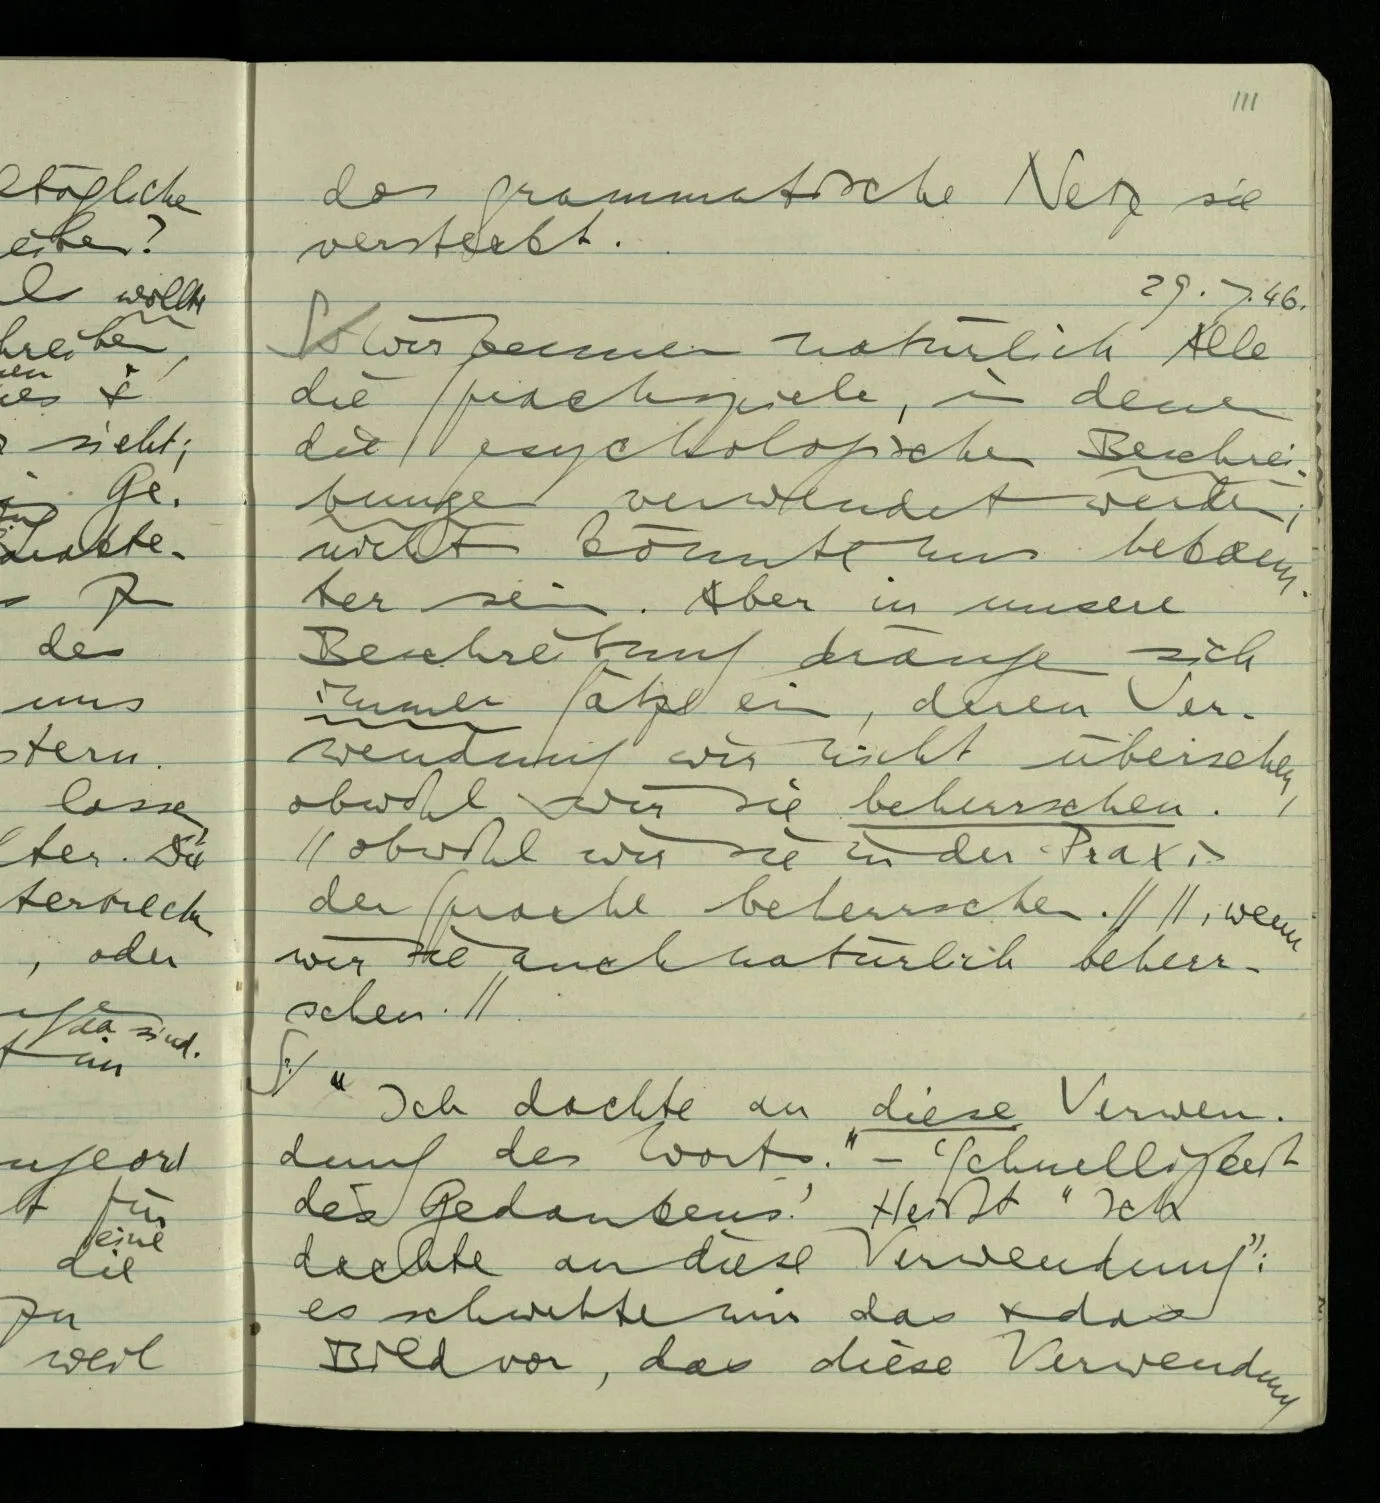 ltägliche
eiben?
wollte
hreiben,
nen
nes &
sieht;
Ge-
akte-
zu
des
uns
stern.
lasse,
lter. Die
terbrech
, oder
da sind.
t in
ngeord
t für
eine
die
zu
weil
111
das grammatische Netz sie
versteckt.
29.7.46.
Wir kennen natürlich Alle
die Sprachspiele, in denen
die psychologischen Beschrei-
bungen verwendet werden;
nichts könnte uns bekann-
ter sein. Aber in unsere
Beschreibung drängen sich
immer Sätze ein, deren Ver-
wendung wir nicht übersehen,
obwohl wir sie beherrschen.
// obwohl wir sie in der Praxis
der Sprache beherrschen. // //, wenn
wir sie auch natürlich beherr-
schen. //
"Ich dachte an diese Verwen-
dung des Worts." – 'Schnelligkeit
des Gedankens.' Heißt "Ich
dachte an diese Verwendung":
es schwebte mir das & das
Bild vor, das diese Verwendung